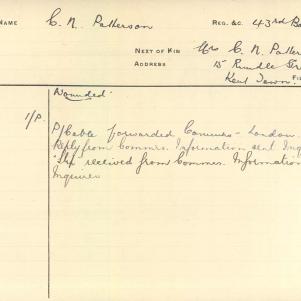 NAME C. N. Patterson REG. &C. 43rd Ba
NEXT OF KIN Mrs C. N. Patter
ADDRESS 15 Rundle Str
Kent Town.
Wounded.
1/P. P/Cable forwarded Commrs - London
Reply from Commrs. Information sent Inq
Slip received from Commrs. Information
Inquiries